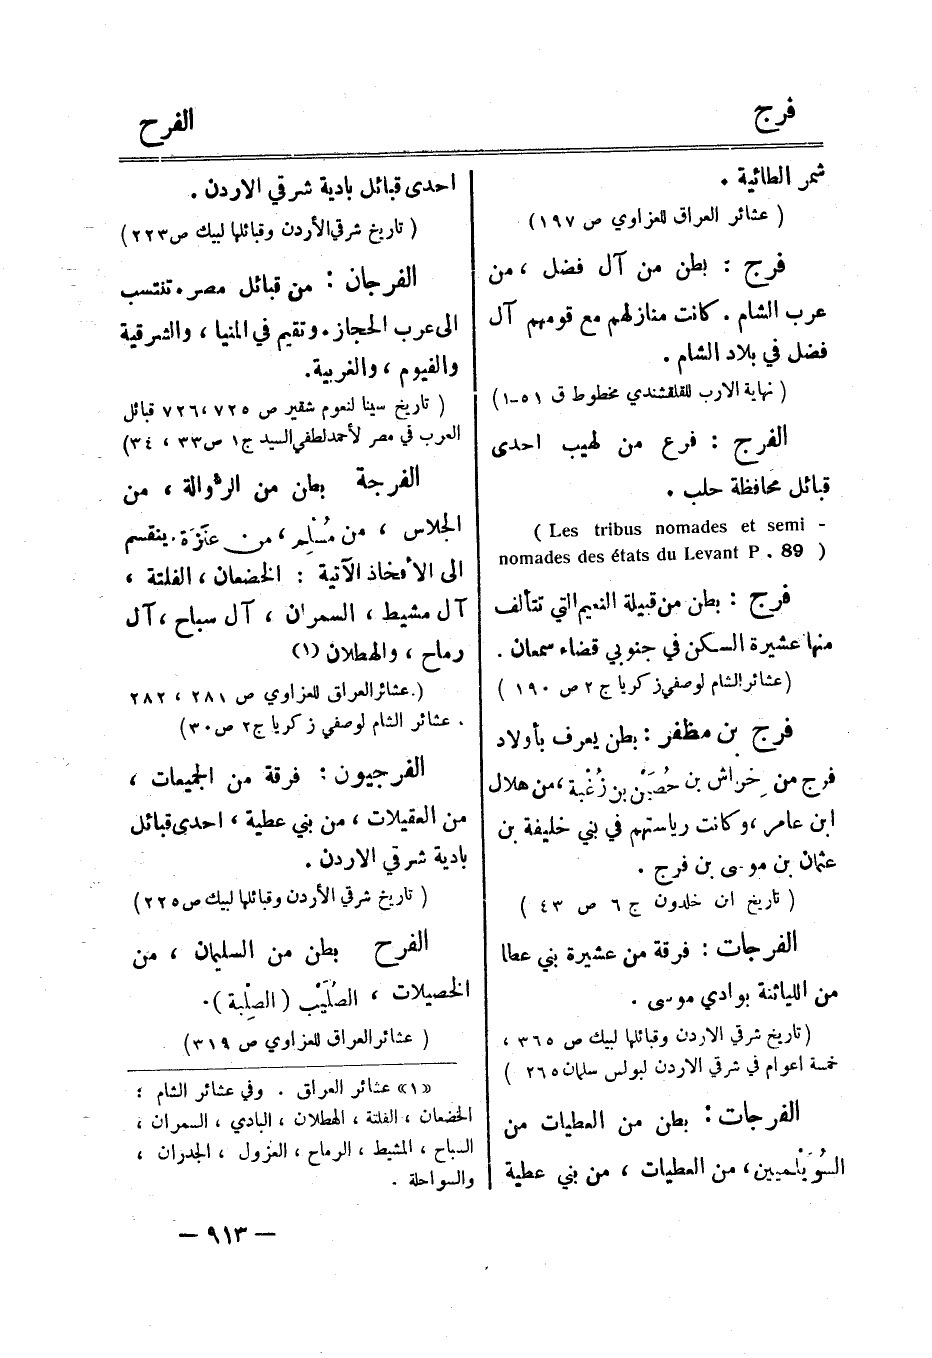 فرج
الفرح
شمر الطائية .
( عشائر العراق للعزاوي ص ١٩٧)
فرج : بطن من آل فضل ، من
عرب الشام . كانت منازلهم مع قومهم آل
فضل في بلاد الشام .
( نهاية الارب للقلقشندي مخطوط ق ٥١-١)
الفرج : فرع من لهيب احدى
قبائل محافظة حلب .
( Les tribus nomades et semi -
nomades des états du Levant P . 89 )
فرج : بطن من قبيلة النعيم التي تتألف
منها عشيرة السكن في جنوبي قضاء سمعان .
(عشائر الشام لوصفي زكريا ج ٢ ص ١٩٠ )
فرج بن مظفر : بطن يعرف بأولاد
فرج من خراش بن حُصَيْن بن زُغْبة ،من هلال
ابن عامر ،وكانت رياستهم في بني خليفة بن
عثمان بن موسى بن فرج .
( تاريخ ان خلدون ج ٦ ص ٤٣ )
الفرجات : فرقة من عشيرة بني عطا
من اللياثنة بوادي موسى .
(تاريخ شرقي الاردن وقبائلها لبيك ص ٣٦٥ ،
خمسة اعوام في شرقي الاردن لبولس سلمان ٢٦٥ )
الفرجات : بطن من العطيات من
السُوَيْلميين، من العطيات ، من بني عطية
احدى قبائل بادية شرقي الاردن .
( تاريخ شرقي الأردن وقبائلها لبيك ص٢٢٣)
الفرجان : من قبائل مصر . تنتسب
الى عرب الحجاز . وتقيم في المنيا ، والشرقية
والفيوم ، والغربية.
( تاريخ سينا لنعوم شقير ص ٧٢٦،٧٢٥ قبائل
العرب في مصر لأحمد لطفي السيد ج١ ص٣٣ ، ٣٤)
الفرجة بطن من الرؤالة ، من
الجلاس ، من مُسْلِم ، من عَنَزَة . ينقسم
الى الأفخاذ الآتية : الخضعان ، الفلتة ،
آل مشيط ، السمران ، آل سباح ، آل
رماح ، والهطلان (١)
(.عشائر العراق للعزاوي ص ٢٨١ ، ٢٨٢
. عشائر الشام لوصفي زكريا ج٢ ص٣٠)
الفرجيون : فرقة من الجميعات ،
من العقيلات ، من بني عطية ، احدى قبائل
بادية شرقي الاردن .
( تاريخ شرقي الأردن وقبائلها لبيك ص٢٢٥)
الفرح بطن من السليمان ، من
الخصيلات ، الصُلَيْب (الصلِبة).
( عشائر العراق للعزاوي ص ٣١٩)
«١» عشائر العراق . وفي عشائر الشام :
الخضعان ، الفلتة ، الهطلان ، البادي ، السمران ،
السباح ، المشيط ، الرماح ، العزول ، الجدران ،
والسواحلة .
— ٩١٣ —